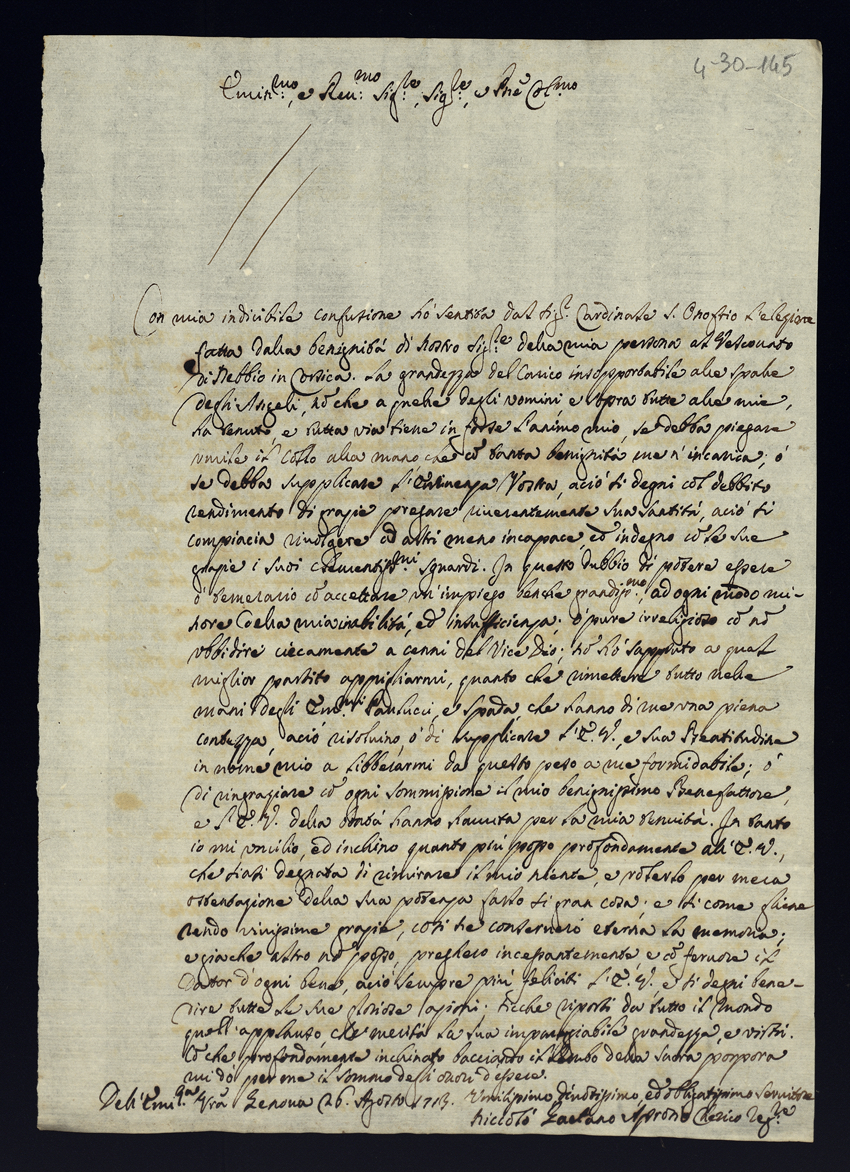 4-30-145
Emin:mo, e Reu:mo Sig:re, Sig:re, e Prẽ Col:mo
Con mia indicibile confusione hó sentita dal Sig:r Cardinale S. Onofrio l'elezione
fatta dalla benignitá di Nostro Sig:re della mia persona al Vescouato
di Nebbio in Corsica. La grandezza del Carico insopportabile alle spalle
degli Angeli, nõ che a quelle degli uomini e sopra tutte alle mie,
ha tenuto, e tutta via tiene in forse l'animo mio, se debba piegare
umile il Collo alla mano che cõ tanta benignitá me n'incarica; ó
se debba supplicare l'Eminenza Vostra, ació si degni col debbito
rendimento di grazie pregare riuerentemente Sua Santitá, ació si
compiacia riuolgere ad altri meno incapace, ed indegno cõ le sue
grazie i suoi clementiss:mi sguardi. In questo dubbio di potere essere
ó temerario cõ accettare un'impiego benche grandiss:mo, ad ogni modo mi-
nore della mia inabilitá, ed insufficienza; ó pure irreligioso cõ nõ
ubbidire ciecamente a cenni del Vice Dio; nõ hó sapputo a qual
miglior partito appigliarmi, quanto che rimettere tutto nelle
mani degli Em:mi Paulucci, e Spada, che hanno di me una piena
contezza, ació risoluino, ó di supplicare l'E. V., e Sua Beatitudine
in nome mio a libberarmi da questo peso a me formidabile; ó
di ringraziare cõ ogni sommissione il mio benignissimo Benefattore,
e l'E. V. della bontá hanno hauuta per la mia tenuitá. In tanto
io mi umilio, ed inchino quanto piú posso profondamente all'E. V.,
che siasi degnata di rimirare il mio niente, e uolerlo per mera
ostentazione della sua potenza fatto sí gran cosa; e si come gliene
rendo uiuissime grazie, cosí ne conserueró eterna la memoria;
e giache altro nõ posso, pregheró incessantemente e cõ feruore il
Dator d'ogni bene, ació sempre piú feliciti l'E. V., e si degni bene-
dire tutte le sue gloriose azioni: sicche riporti da tutto il mondo
quell'applauso, che merita la sua impareggiabile grandezza, e uirtú.
Cõ che profondamente inchinato bacciando il lembo della Sacra porpora
mi dó per me il sommo degli onori d'essere.
Dell'Emi:za Vrã Genova 26. Agosto 1713. Umilissimo, diuotissimo, ed obligatissimo Seruitore
Niccoló Gaetano Aprosio Clerico Reg:re